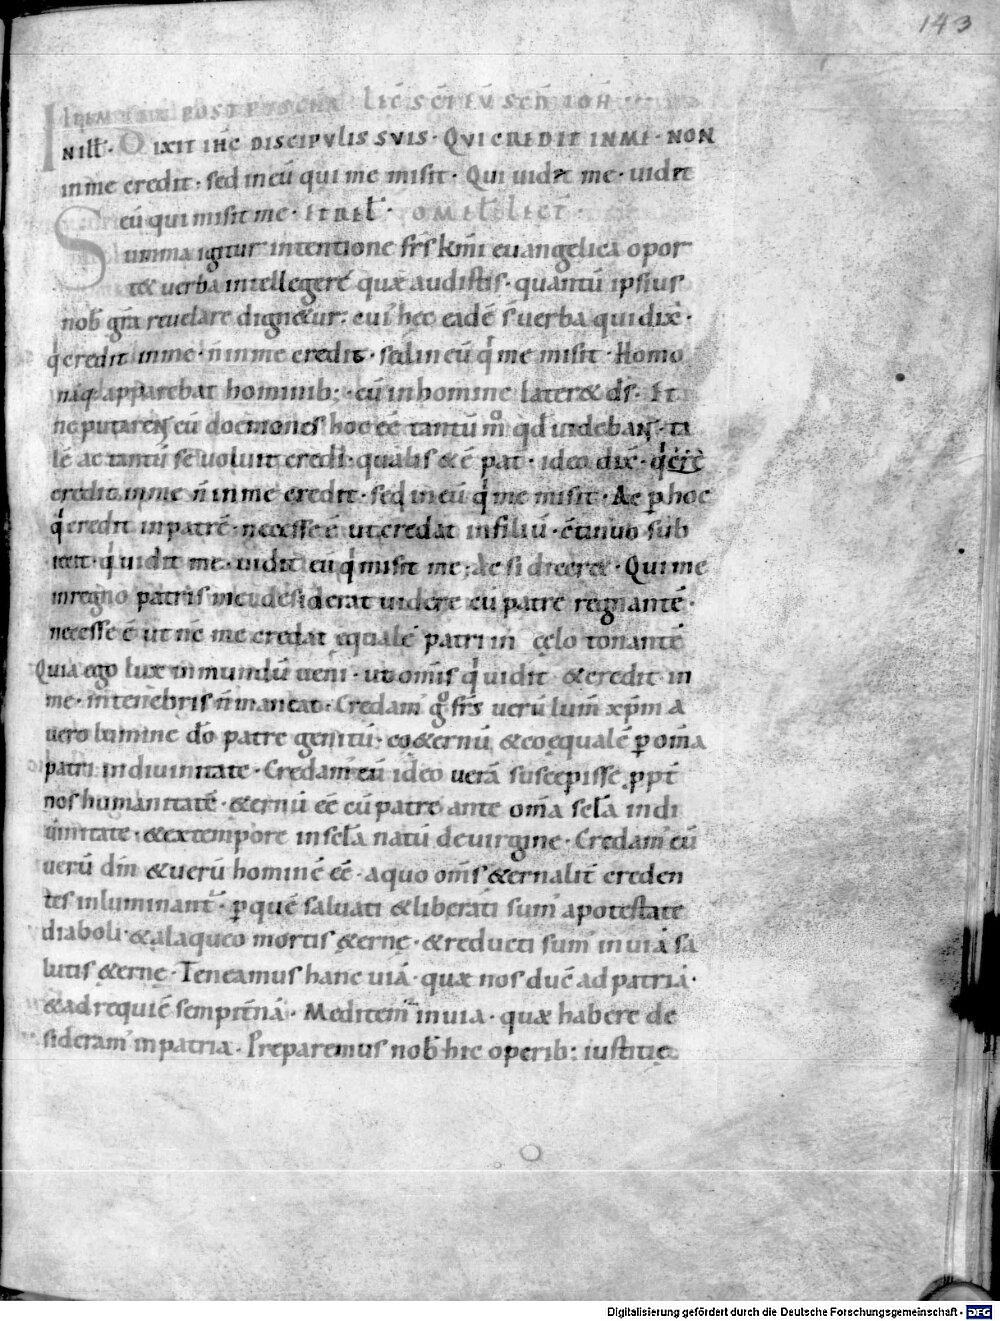 143
POST LEC SCI EV SCDM IOH
NILL· DIXIT IHC DISCIPVLIS SVIS· QVI CREDIT IN ME· NON
in me credit· sed in eū qui me misit· Qui uidet me· uidet
eū qui misit me· ET REL̄· OMEL̄
Summa igitur intentione frs̄ km̄i euangelica opor
tet uerba intellegere quæ audistis· quantū ipsius
nob̄ grā reuelare dignetur· eui hec eadē s̄ uerba qui dix̄·
q credit in me· n̄ in me credit· sed in eū q me misit· Homo
niq· apparebat hominib; cū in homine lateret ds̄· Et
ne putarent eū doemones hoc eē tantū m̊ qd uidebant· ta
lē ac tantū se uoluit credi· qualis & ē pat̄· ideo dix̄·
credit in me n̄ in me credit· sed in eū q me misit· Ac p hoc
q credit in patrē· necesse ē ut credat in filiū· c̄tinuo sub
iecit· q uidit me· uidit eū q misit me; Ac si diceret· Qui me
in regno patris mei desiderat uidere cū patre regnantē·
necesse ē ut nē me credat equalē patri in celo tonantē
Quia ego lux in mundū ueni· ut omīs q uidit & credit in
me· in tenebris n̄ maneat· Credam̄ g° frs̄ uerū lum̄ xp̄m a
uero lumine do patre genitū· co&ernū & coequalē p om̄a
patri in diuinitate· Credam̄ eū ideo uerā suscepisse ppt̄
nos humanitatē· &ernū eē cū patre ante om̄a sc̄la in di
uinitate· & ex tempore in sc̄la natū de uirgine· Credam̄ eū
uerū dm̄ & uerū hominē eē· a quo om̄s &ernalit̄ creden
tes inluminant̄· p quē saluati & liberati sum̄ a potestate
diaboli· & a laqueo mortis &erne· & reducti sum̄ in uiā sa
lutis &erne· Teneamus hanc uiā· quæ nos duc̄ ad patriā·
& ad requiē sempit̄nā· Meditem̄ in uia· quæ habere de
sideram̄ in patria· Preparemus nob̄ hic operib; iustitie
Digitalisierung gefördert durch die Deutsche Forschungsgemeinschaft - DFG